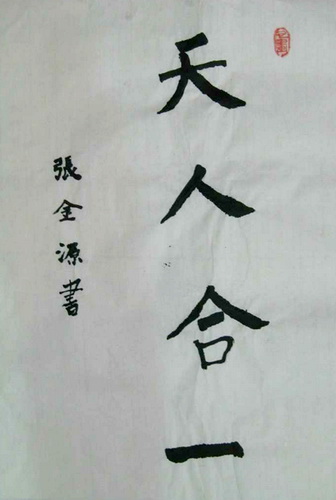 天人合一
張金源書